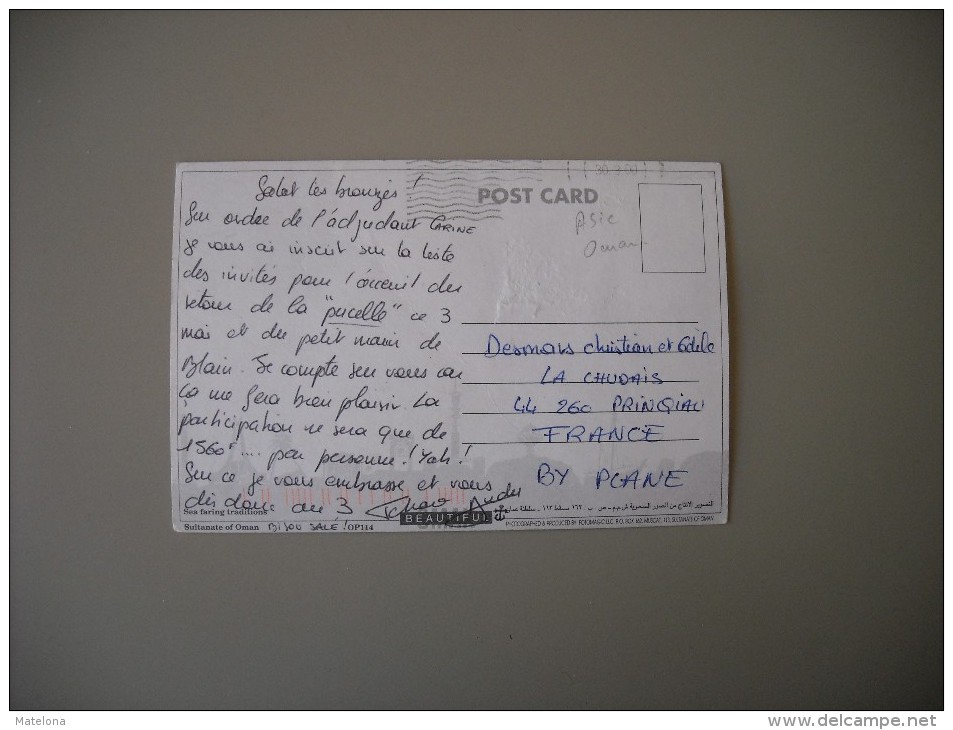 Salut les bronzés !
Sur ordre de l'adjudant CARINE
je vous ai inscrit sur la liste
des invités pour l'acceuil du
retour de la "pucelle" ce 3
mai et du petit marin de
Blain. Je compte sur vous car
ça me fera bien plaisir. La
participation ne sera que de
1560F .... par personne ! Yah !
Sur ce je vous embrasse et vous
dis donc au 3 Tchao
Sea faring traditions
Sultanate of Oman BIJOU SALÉ ! OP144
BEAUTIFUL
POST CARD
30 3 00
Asie
Oman
Desmars Christian et Odile
LA CHUDAIS
44 260 PRINQIAU
FRANCE
BY PLANE
PHOTOGRAPHED & PRODUCED BY FOTOMAGIC LLC, P.O. BOX 163, MUSCAT, 113, SULTANATE OF OMAN
Matelona
www.delcampe.net